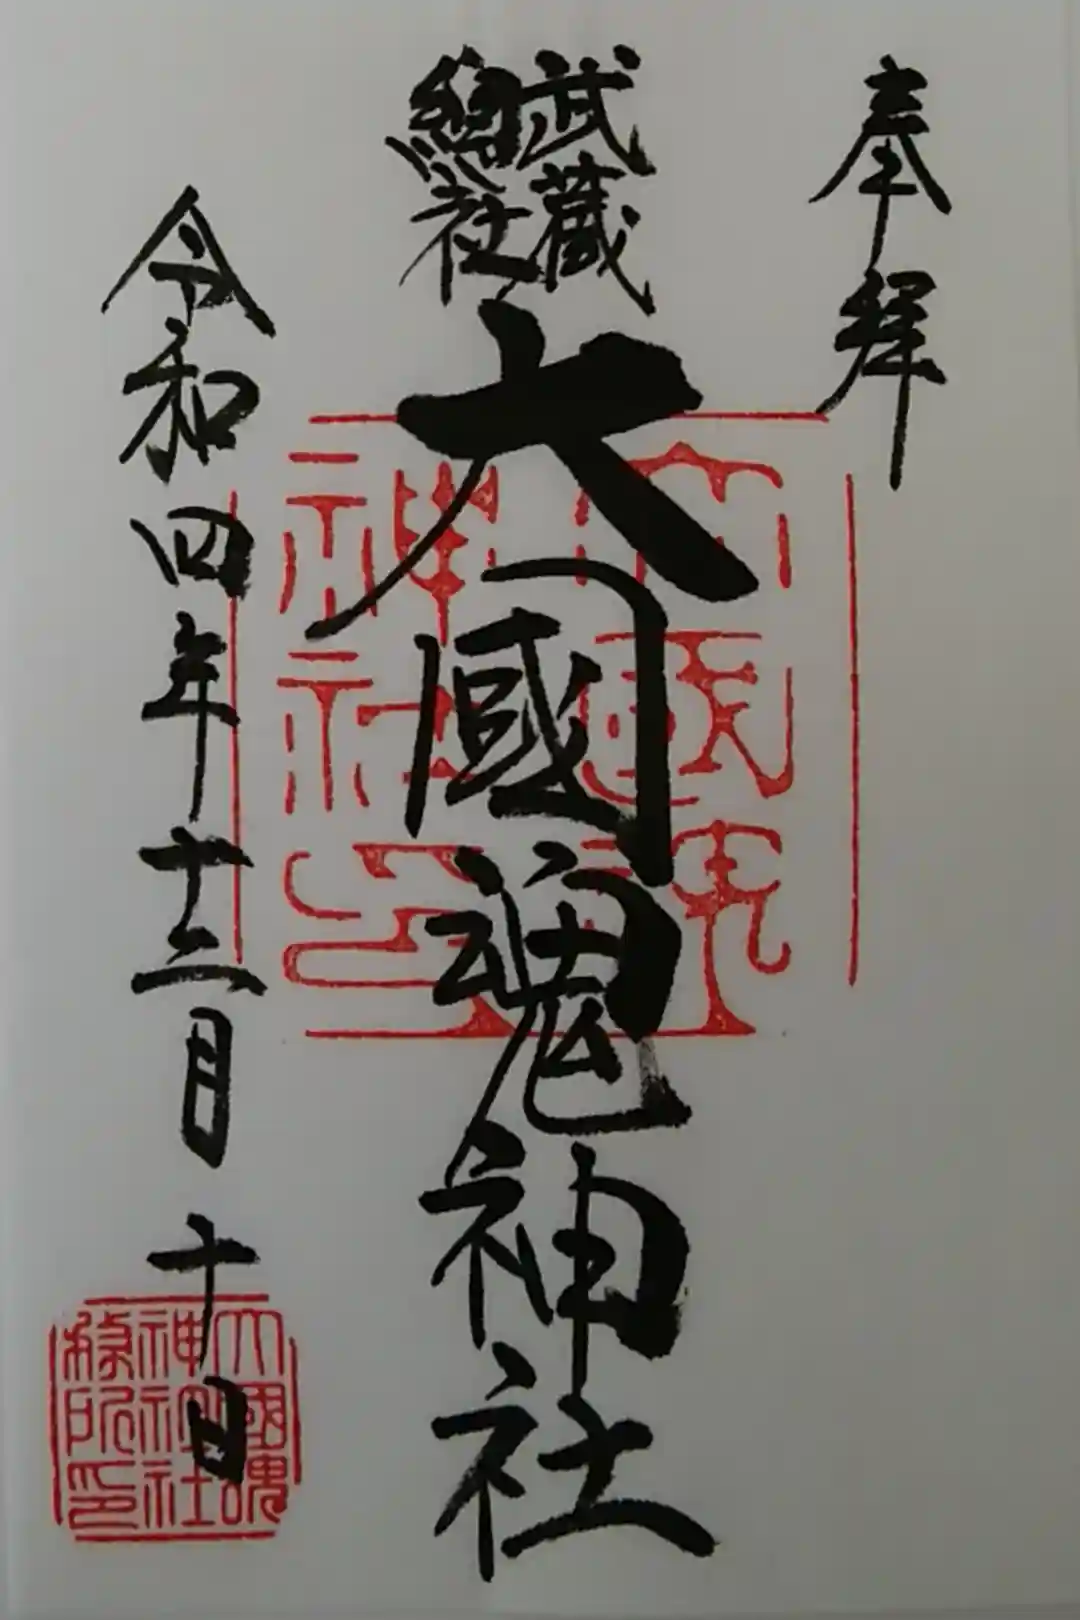 奉拝
武蔵
總社
大國魂神社
令和四年十二月十日
大國魂
神社印
大國魂
神社社
務所印